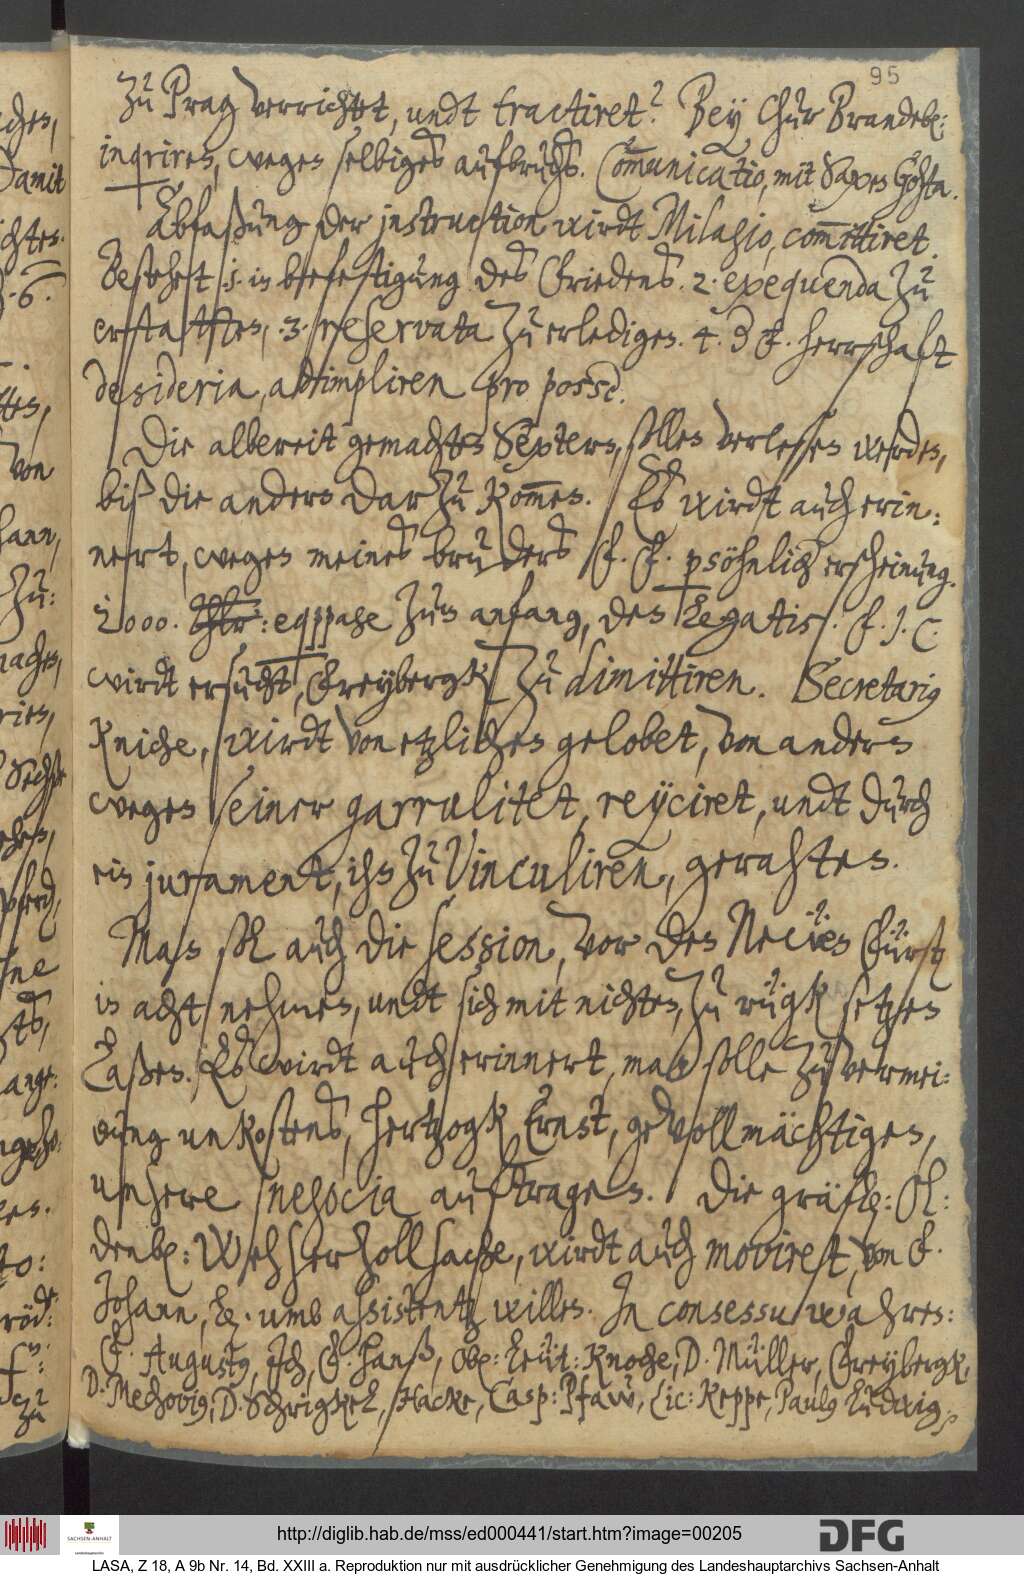 95
Zu Prag verrichtet, undt tractiret? Bey Chur Brandeb:
inqriren, wegen selbiges aufbruchs. Com̄unicatio, mit Saxen Gohta.
Abfaßung der instruction wirdt Milagio, com̄ittiret.
Bestehet 1. in befestigung des Friedens. 2. exequenda zu
erstatten, .3. reservata zu erledigen. 4. d F. herrschaft
desideria, adimpliren pro posse.
Die albereit gemachten Sextern, sollen verlesen werden,
biß die andern darzu kom̄en. Es wirdt auch erin:
nert, wegen meines bruders F. F. psöhnlich erscheinung.
2000. Thlr: eqppage zum anfang, des Legatis. F. J. C.
wirdt ersucht, Freybergk zu dimittiren. Secretarius
Kniche, wirdt von etzlichen gelobet, von andern
wegen seiner garrulitet, reÿciret, undt durch
ein jurament, ihn zu vinculiren, gerahten.
Man sol auch die session, vor den Newen Fürsten
in acht nehmen, undt sich mit nichten, zu rügk setzen
Laßen. Es wirdt auch erinnert, man solle zu vermei:
dung unkostens, hertzogk Ernst, gevollmächtigen,
unsere negocia auftragen. Die gräfl: Ol:
denb: Weh serzoll sache, wirdt auch moviret, von F.
Johann, umb assistentz willen. In consessu wahren:
F. Augustus, Ich, F. Hanß, Ob: Leüt: Knoche, D. Müller, Freybergk,
D. Mechovius, D. Schwigkel, Hacke, Casp: Pfaw, Lic: Reppe, Paulus Ludwig,
http://diglib.hab.de/mss/ed000441/start.htm?image=00205
SACHSEN-ANHALT
Landeshauptarchiv
DFG
LASA, Z 18, A 9b Nr. 14, Bd. XXIII a. Reproduktion nur mit ausdrücklicher Genehmigung des Landeshauptarchivs Sachsen-Anhalt